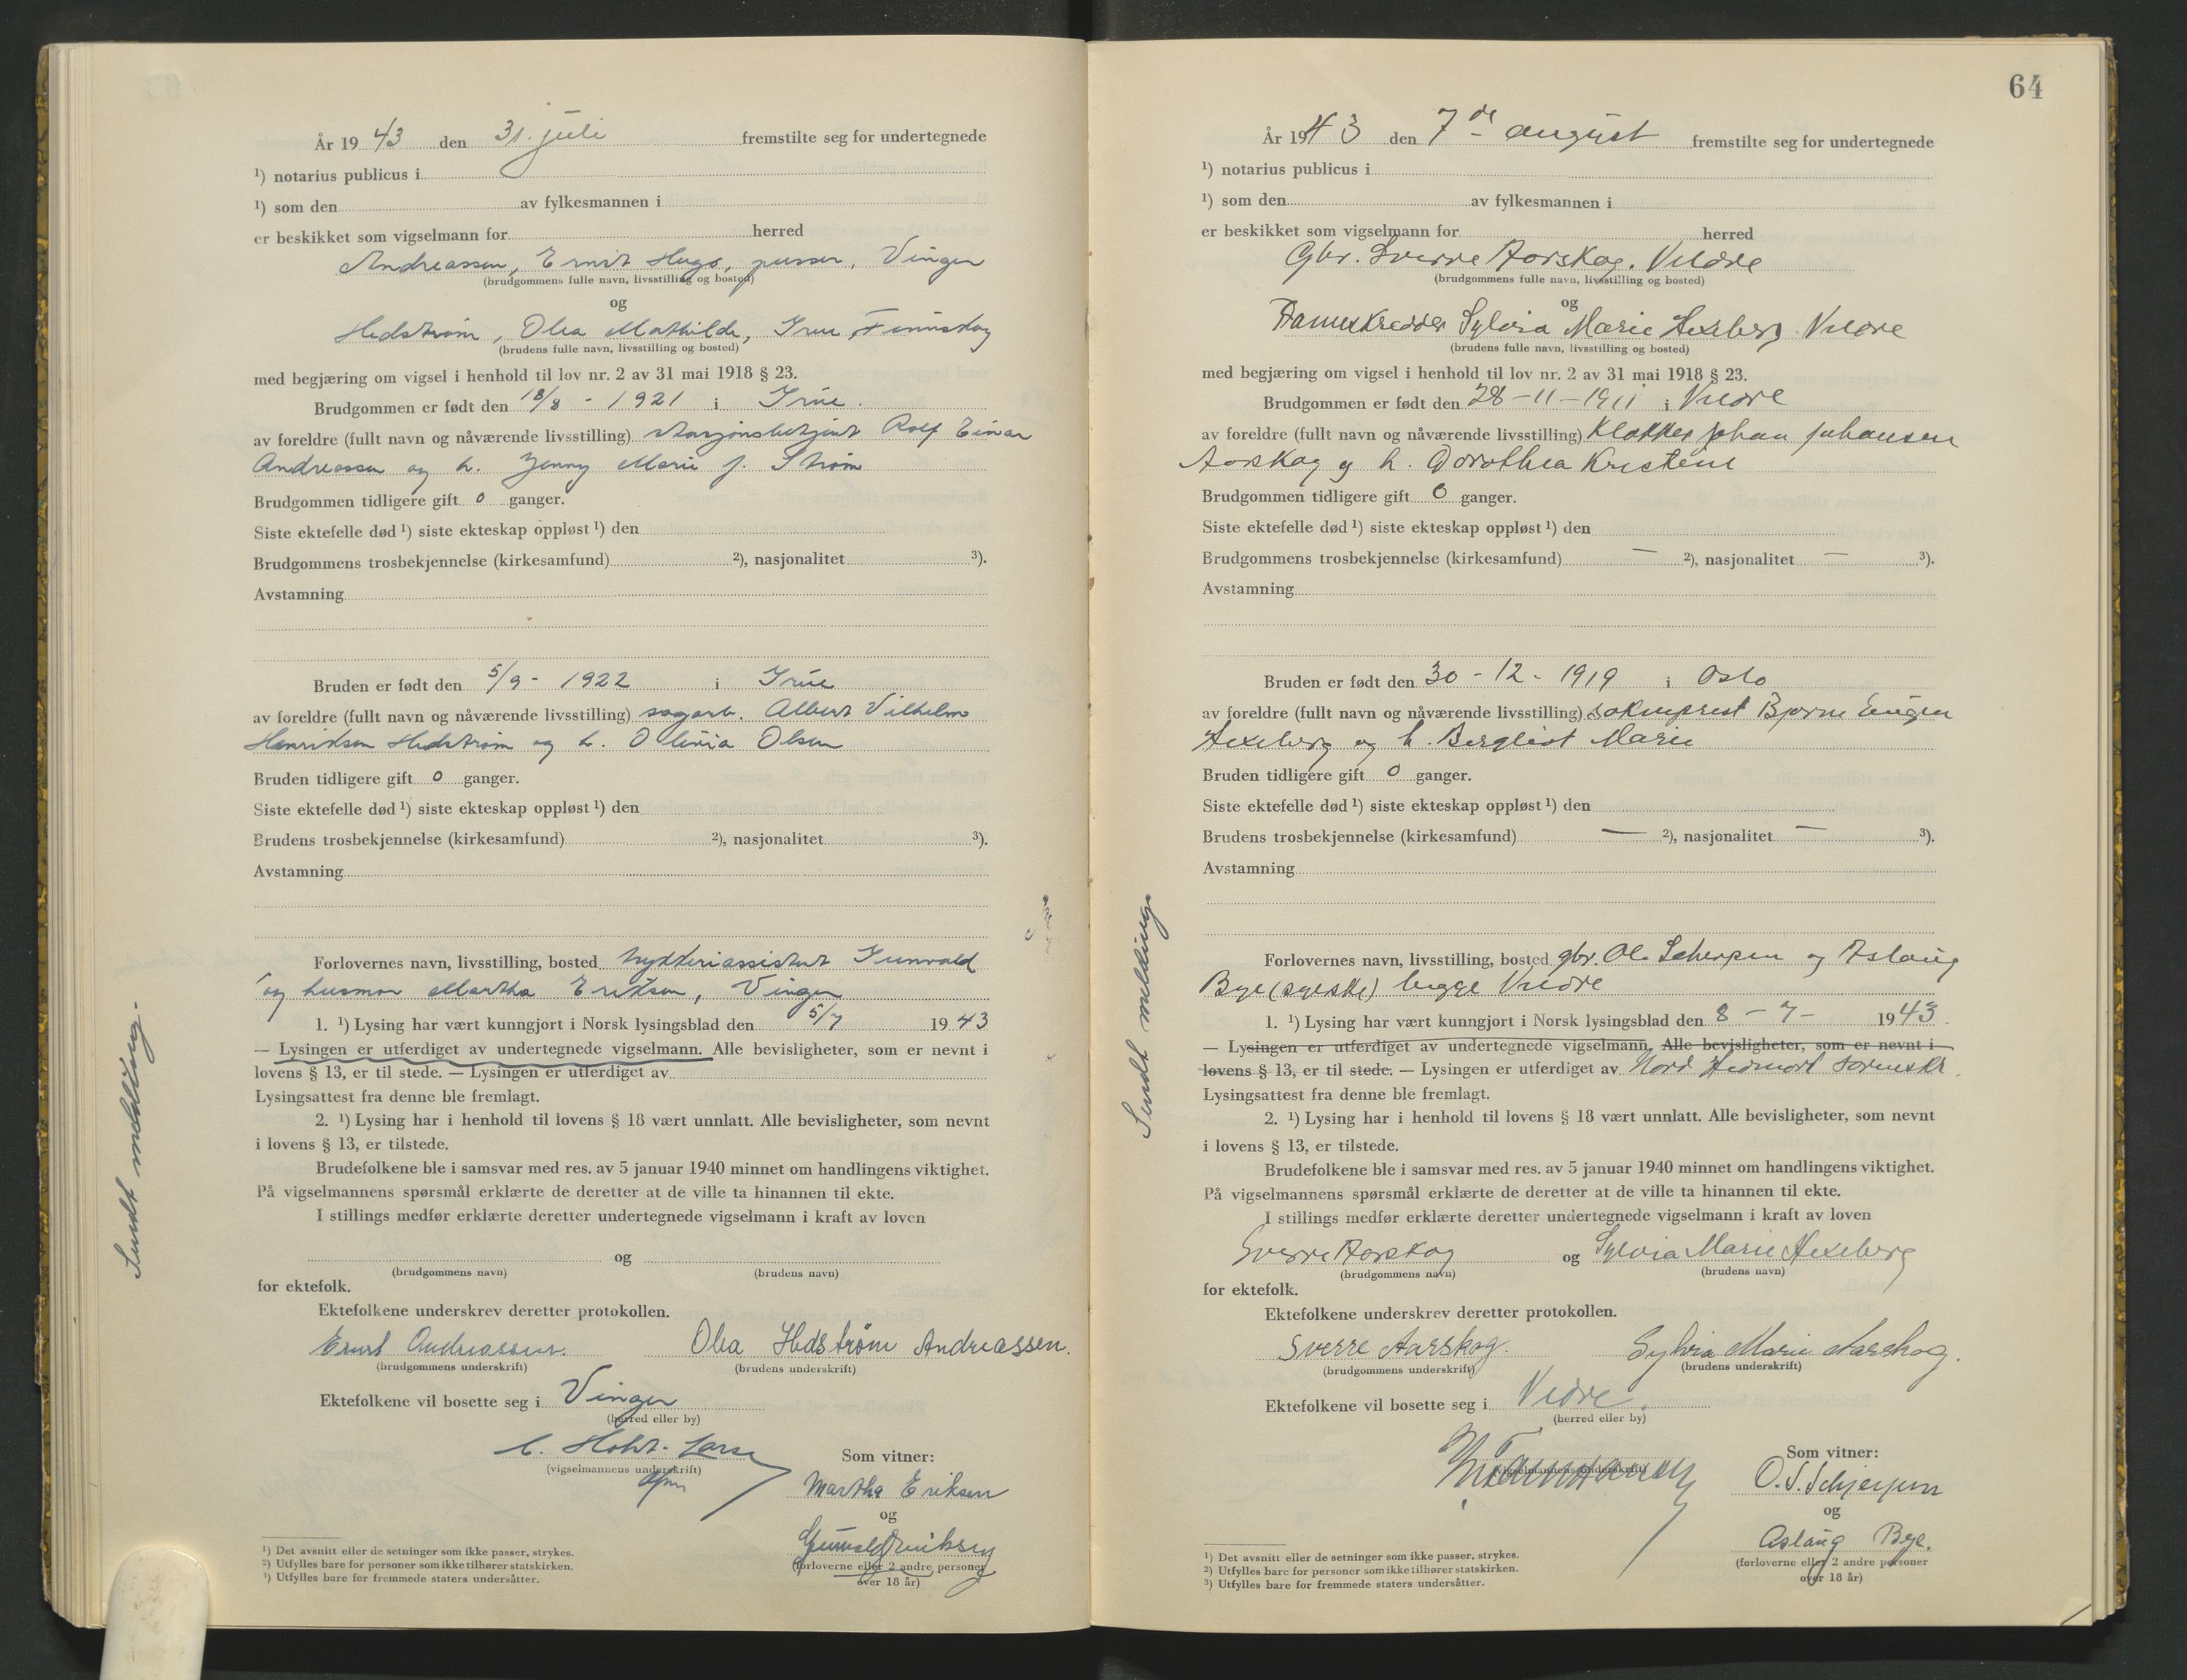 År 1943 den 31. juli fremstilte seg for undertegnede
¹) notarius publicus i
¹) som den av fylkesmannen i
er beskikket som vigselmann for herred
Andreassen, Ernst Hugo, pusser, Vinger
(brudgommens fulle navn, livsstilling og bosted)
og
Hedstrøm, Olea Mathilde, Grue Finnskog
(brudens fulle navn, livsstilling og bosted)
med begjæring om vigsel i henhold til lov nr. 2 av 31 mai 1918 § 23.
Brudgommen er født den 18/8 - 1921 i Grue.
av foreldre (fullt navn og nåværende livsstilling) stasjonsbetjent Rolf Einar
Andreassen og h. Jenny Marie f. Strøm
Brudgommen tidligere gift 0 ganger.
Siste ektefelle død ¹) siste ekteskap oppløst ¹) den
Brudgommens trosbekjennelse (kirkesamfund) ²), nasjonalitet ³).
Avstamning
Bruden er født den 5/9 - 1922 i Grue
av foreldre (fullt navn og nåværende livsstilling) sagarb. Albert Vilhelm
Henriksen Hedstrøm og h. Olivia Olsen
Bruden tidligere gift 0 ganger.
Siste ektefelle død ¹) siste ekteskap oppløst ¹) den
Brudens trosbekjennelse (kirkesamfund) ²), nasjonalitet ³).
Avstamning
Forlovernes navn, livsstilling, bosted Gunvald
og husmor Martha Eriksen, Vinger
1. ¹) Lysing har vært kunngjort i Norsk lysingsblad den 5/7 1943
— Lysingen er utferdiget av undertegnede vigselmann. Alle bevisligheter, som er nevnt i
lovens § 13, er til stede. — Lysingen er utferdiget av
Lysingsattest fra denne ble fremlagt.
2. ¹) Lysing har i henhold til lovens § 18 vært unnlatt. Alle bevisligheter, som nevnt
i lovens § 13, er tilstede.
Brudefolkene ble i samsvar med res. av 5 januar 1940 minnet om handlingens viktighet.
På vigselmannens spørsmål erklærte de deretter at de ville ta hinannen til ekte.
I stillings medfør erklærte deretter undertegnede vigselmann i kraft av loven
og
(brudgommens navn) (brudens navn)
for ektefolk.
Ektefolkene underskrev deretter protokollen.
Ernst Andreassen. Olea Hedstrøm Andreassen.
(brudgommens underskrift) (brudens underskrift)
Ektefolkene vil bosette seg i Vinger
(herred eller by)
(vigselmannens underskrift)
Som vitner:
Martha Eriksen
og
Gunvald Eriksen
(forloverne eller 2 andre personer
over 18 år)
¹) Det avsnitt eller de setninger som ikke passer, strykes.
²) Utfylles bare for personer som ikke tilhører statskirken.
³) Utfylles bare for fremmede staters undersåtter.
Sendt melding.
64
År 1943 den 7de august fremstilte seg for undertegnede
¹) notarius publicus i
¹) som den av fylkesmannen i
er beskikket som vigselmann for herred
Gbr. Sverre Aarskog. Veldre
(brudgommens fulle navn, livsstilling og bosted)
og
Sylvia Marie Hexeberg Veldre
(brudens fulle navn, livsstilling og bosted)
med begjæring om vigsel i henhold til lov nr. 2 av 31 mai 1918 § 23.
Brudgommen er født den 28-11-1911 i Veldre
av foreldre (fullt navn og nåværende livsstilling) Klokker Johan Johansen
Aarskog og h. Dorothea Kristine
Brudgommen tidligere gift 0 ganger.
Siste ektefelle død ¹) siste ekteskap oppløst ¹) den
Brudgommens trosbekjennelse (kirkesamfund) — ²), nasjonalitet — ³).
Avstamning
Bruden er født den 30 - 12 - 1919 i Oslo
av foreldre (fullt navn og nåværende livsstilling) sokneprest Bjarne Eugen
Hexeberg og h. Bergliot Marie
Bruden tidligere gift 0 ganger.
Siste ektefelle død ¹) siste ekteskap oppløst ¹) den
Brudens trosbekjennelse (kirkesamfund) — ²), nasjonalitet — ³).
Avstamning
Forlovernes navn, livsstilling, bosted gbr. Ole og Aslaug
Bye begge Veldre
1. ¹) Lysing har vært kunngjort i Norsk lysingsblad den 8 - 7 - 1943.
— Lysingen er utferdiget av undertegnede vigselmann. Alle bevisligheter, som er nevnt i
lovens § 13, er til stede. — Lysingen er utferdiget av Nord Hedmark sorenskr.
Lysingsattest fra denne ble fremlagt.
2. ¹) Lysing har i henhold til lovens § 18 vært unnlatt. Alle bevisligheter, som nevnt
i lovens § 13, er tilstede.
Brudefolkene ble i samsvar med res. av 5 januar 1940 minnet om handlingens viktighet.
På vigselmannens spørsmål erklærte de deretter at de ville ta hinannen til ekte.
I stillings medfør erklærte deretter undertegnede vigselmann i kraft av loven
Sverre Aarskog og Sylvia Marie Hexeberg
(brudgommens navn) (brudens navn)
for ektefolk.
Ektefolkene underskrev deretter protokollen.
Sverre Aarskog. Sylvia Marie Aarskog.
(brudgommens underskrift) (brudens underskrift)
Ektefolkene vil bosette seg i Veldre.
(herred eller by)
(vigselmannens underskrift)
Som vitner:
O. S. Schjerpen
og
Aslaug Bye.
(forloverne eller 2 andre personer
over 18 år)
¹) Det avsnitt eller de setninger som ikke passer, strykes.
²) Utfylles bare for personer som ikke tilhører statskirken.
³) Utfylles bare for fremmede staters undersåtter.
Sendt melding.